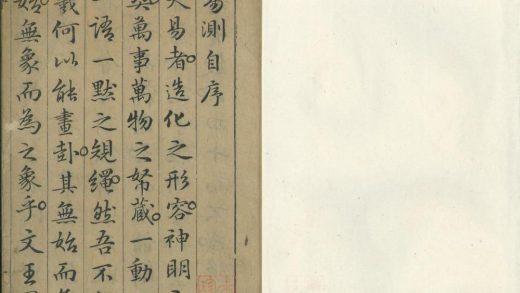 易測自序
夫易者造化之形容神明之
與萬事萬物之帑藏一動
一語一默之規繩然吾不
羲何以能畫卦其無始而
始無象而為之象乎文王